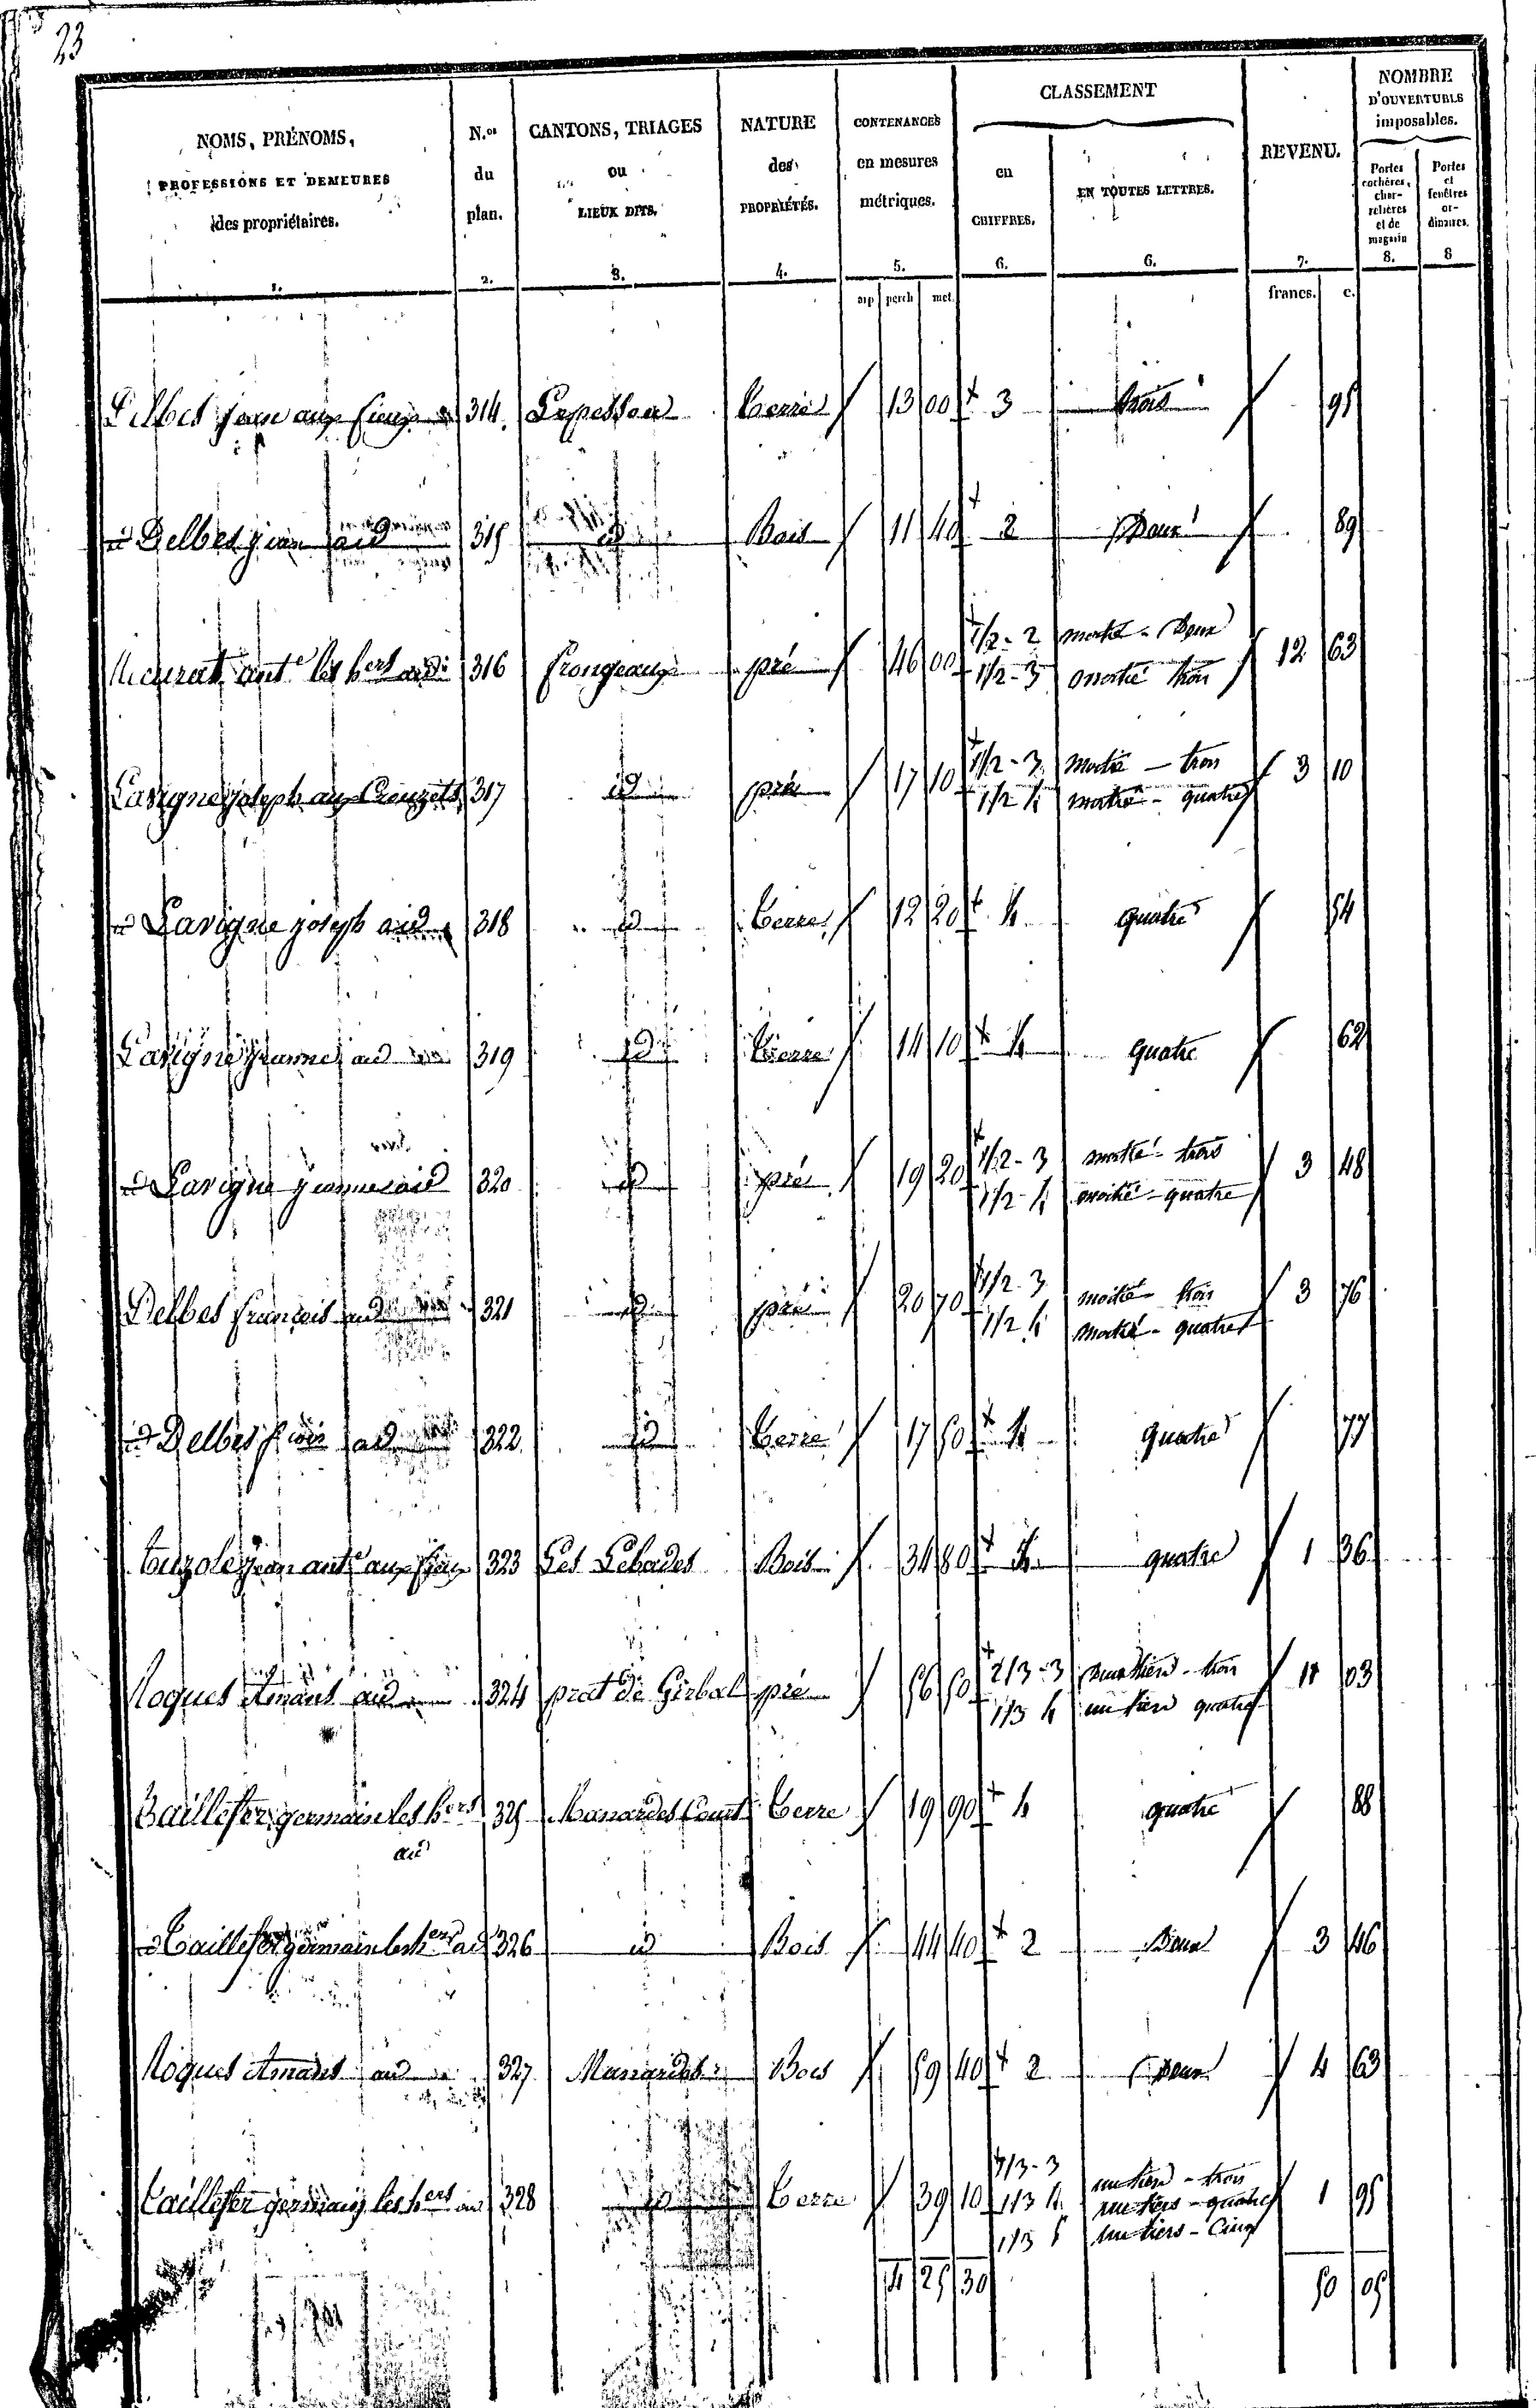 23
NOMS, PRÉNOMS, PROFESSIONS ET DEMEURES des propriétaires. 1.
N.os du plan. 2.
CANTONS, TRIAGES ou LIEUX DITS. 3.
NATURE des PROPRIÉTÉS. 4.
CONTENANCES en mesures métriques. 5.
CLASSEMENT
en CHIFFRES. 6.
EN TOUTES LETTRES. 6.
REVENU. 7.
NOMBRE D'OUVERTURES imposables.
Portes cochères, charretières et de magasin 8.
Portes et fenêtres ordinaires. 8
arp perch met. francs. c.
Delbes jean aux 314. terre 13 00 3 trois 95
id Delbes jean aud 315 id Bois 11 40 2 Deux 89
ant.e les hers aud 316 frongeaux pré 46 00 1/2 - 2 moitié - Deux 12 63
1/2 - 3 moitié trois
Lavigne joseph aux Crouzets 317 id pré 17 10 1/2 - 3 moitié - trois 3 10
1/2 4 moitié - quatre
id Lavigne joseph aud 318 id terre 12 20 4 quatre 54
Lavigne jeanne aud 319 id terre 14 10 4 quatre 62
id Lavigne jeanne aud 320 id pré 19 20 1/2 - 3 moitié - trois 3 48
1/2 - 4 moitié - quatre
Delbes françois aud 321 id pré 20 70 1/2 3 moitié trois 3 76
1/2 4 moitié - quatre
id Delbes f.cois aud 322 id terre 17 50 4 quatre 77
jean ant.e aux 323 Les Lebades Bois 34 80 4 quatre 1 36
Roques Amans aud 324 prat de Girbal pré 56 50 2/3 - 3 deux tiers - trois 11 03
1/3 4 un tiers quatre
Taillefer germain les hers 325 terre 19 90 4 quatre 88
aud
id Taillefer germain les hers aud 326 id Bois 44 40 2 Deux 3 46
Roques Amans aud 327 Manardes Bois 59 40 2 Deux 4 63
Taillefer germain les hers aud 328 id terre 39 10 1/3 - 3 un tiers - trois 1 95
1/3 4 un tiers - quatre
1/3 5 un tiers - Cinq
4 25 30 50 05